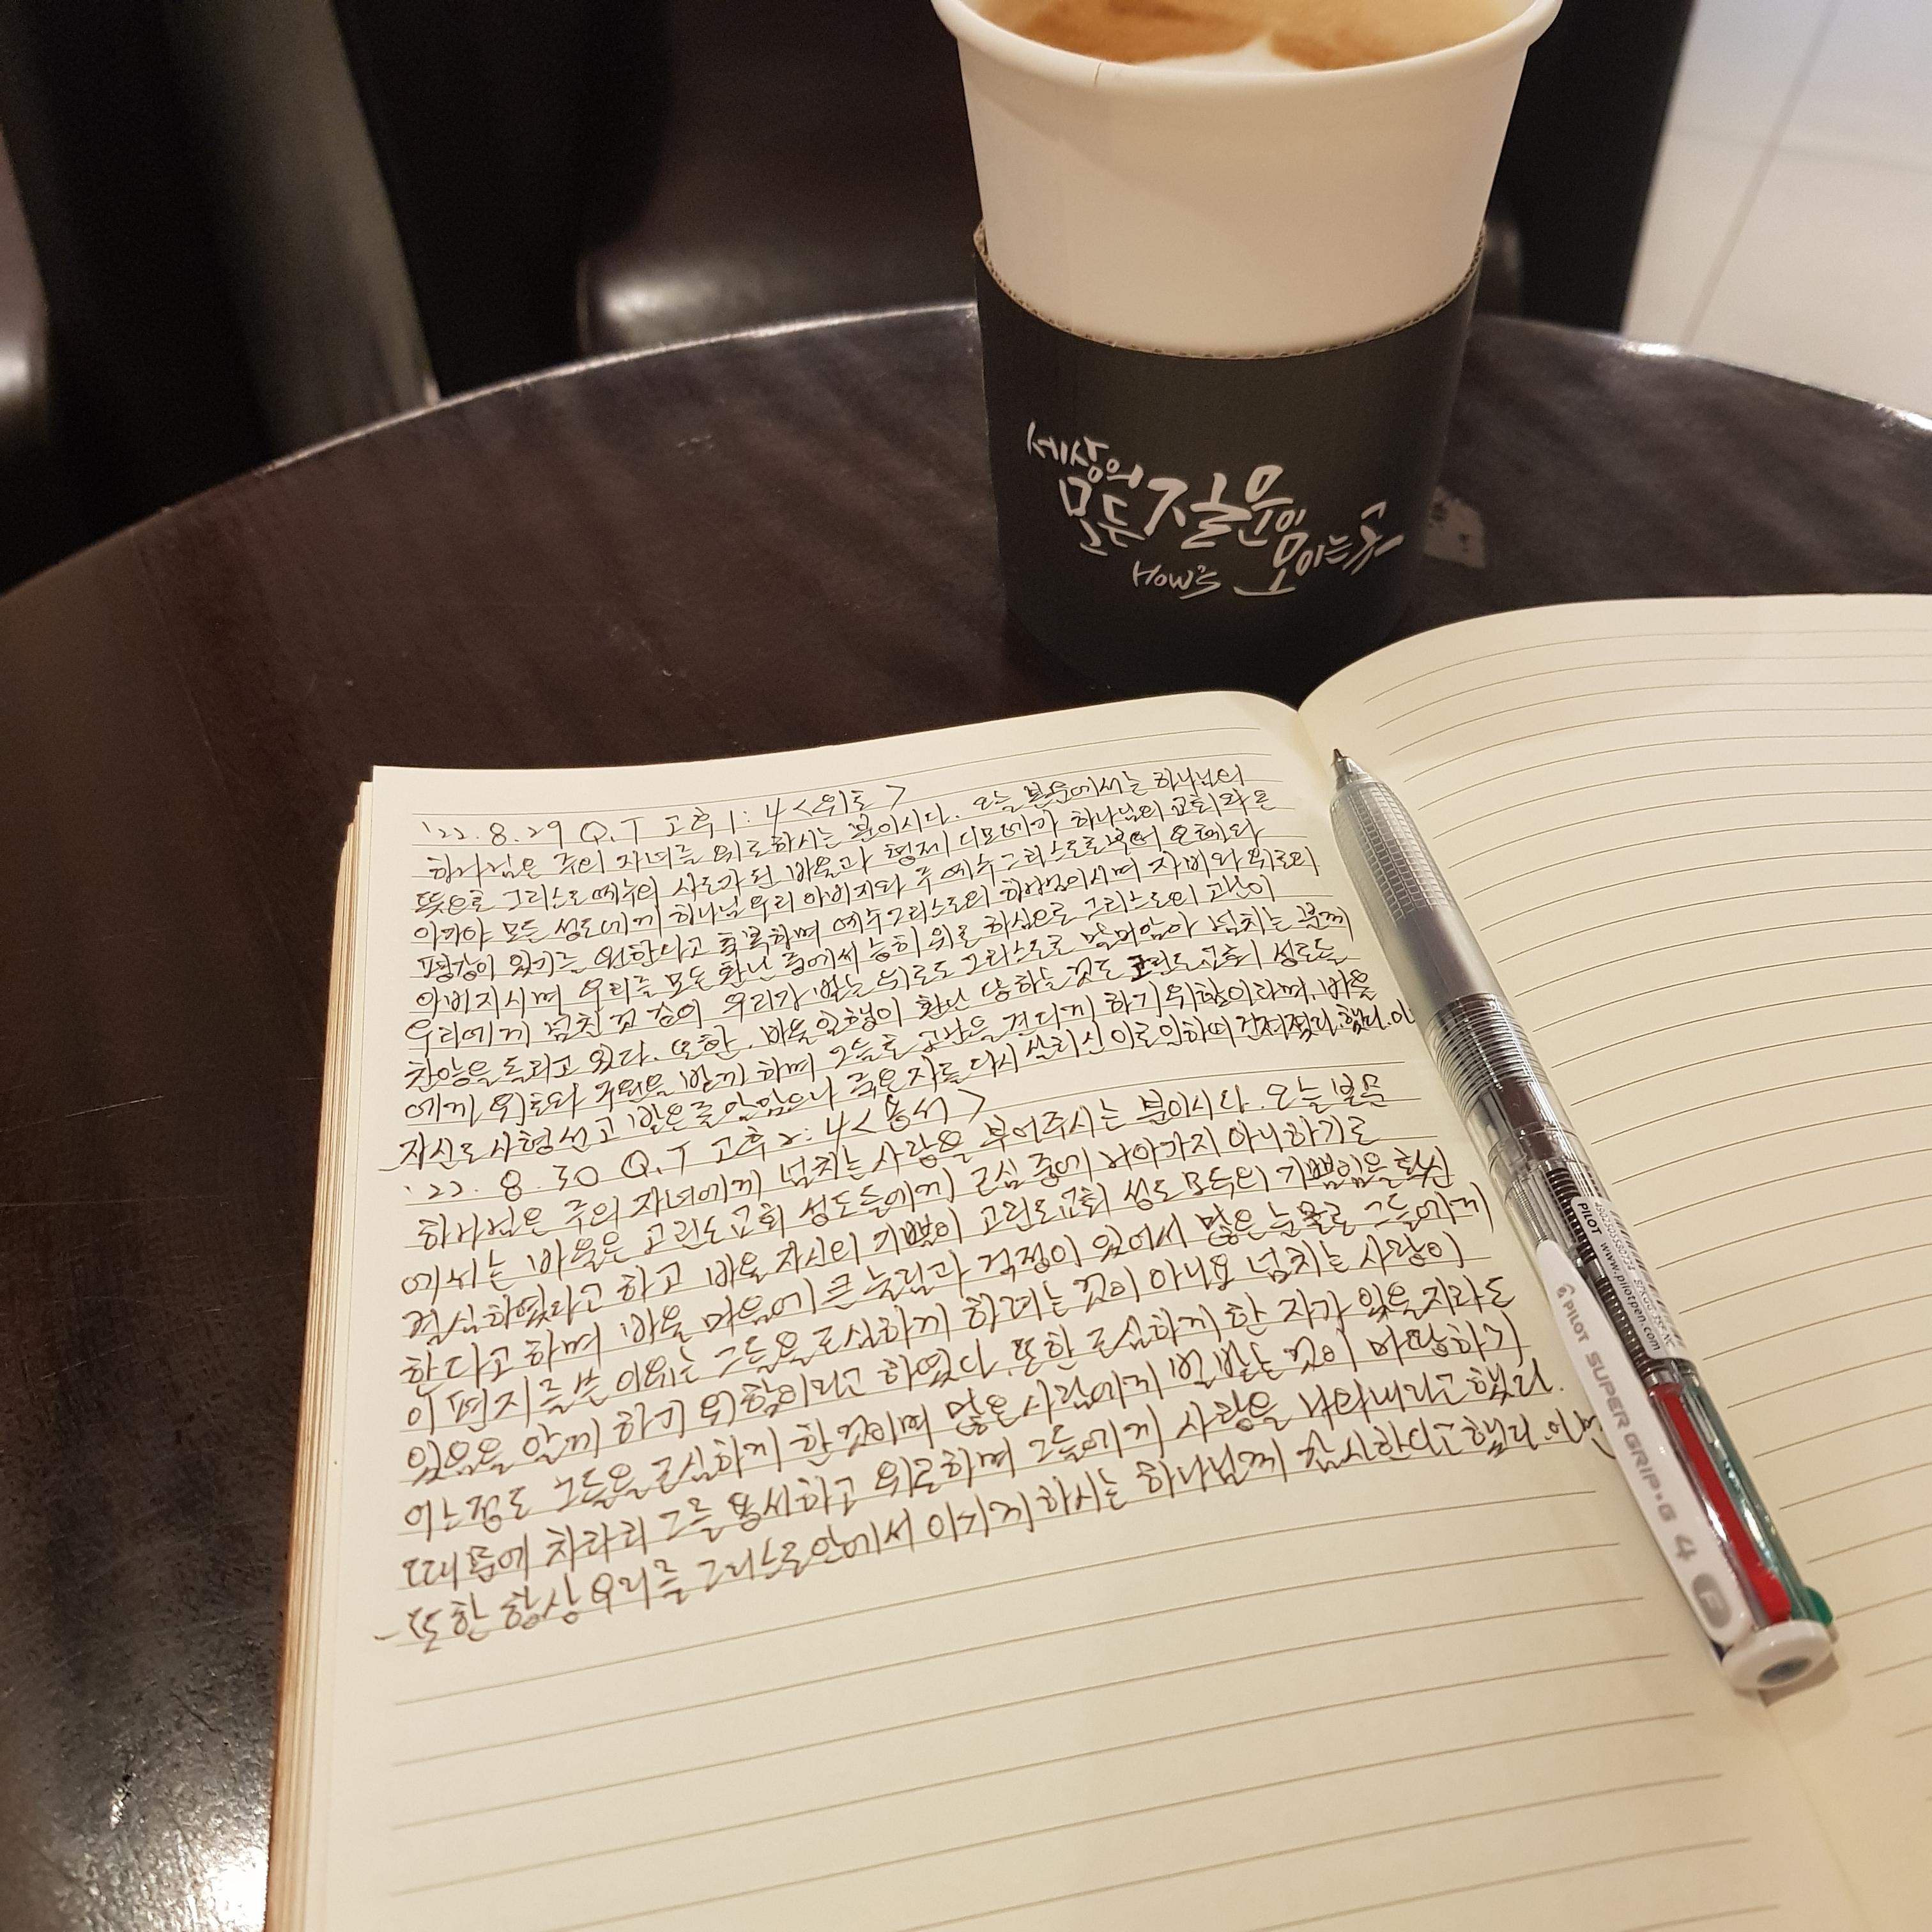 세상의
모든 질문이
모이는 곳
How's
'22. 8. 29 Q.T 고후 1: 4 <위로>
하나님은 주의 자녀를 위로하시는 분이시다. 오늘 본문에서는 하나님의
뜻으로 그리스도 예수의 사도가 된 바울과 형제 디모데가 하나님의 교회와 온
아가야 모든 성도에게 하나님 우리 아버지와 주 예수 그리스도로부터 은혜와
평강이 있기를 원한다고 축복하며 예수 그리스도의 하나님이시며 자비와 위로의
아버지시며 우리를 모든 환난 중에서 능히 위로 하심으로 그리스도의 고난이
우리에게 넘친 것 같이 우리가 받는 위로도 그리스도로 말미암아 넘치는 분께
찬양을 드리고 있다. 또한, 바울 일행이 환난 당하는 것도 고린도 교회 성도들
에게 위로와 구원을 받게 하며 그들도 고난을 견디게 하기 위함이라며, 바울
자신도 사형 선고 받은 줄 알았으나 죽은 자를 다시 살리신 이로 인하여 건져졌다.했다.이
'22. 8. 30 Q.T 고후 2: 4 <용서>
하나님은 주의 자녀에게 넘치는 사랑을 부어주시는 분이시다. 오늘 본문
에서는 바울은 고린도 교회 성도들에게 근심 중에 나아가지 아니하기로
결심하였다고 하고 바울 자신의 기쁨이 고린도교회 성도 모두의 기쁨임을 확신
한다고 하며 바울 마음에 큰 눌림과 걱정이 있어서 많은 눈물로 그들에게
이 편지를 쓴 이유는 그들을 근심하게 하려는 것이 아니요 넘치는 사랑이
있음을 알게 하기 위함이라고 하였다. 또한 근심하게 한 자가 있을지라도
어느정도 그들을 근심하게 한 것이며 많은 사람에게 벌 받는 것이 마땅하기
때문에 차라리 그를 용서하고 위로하며 그들에게 사랑을 나타내라고 했다.
또한 항상 우리를 그리스도 안에서 이기게 하시는 하나님께 감사한다고 했다.
PILOT www.pilotpen.com
PILOT SUPER GRIP·G 4 F